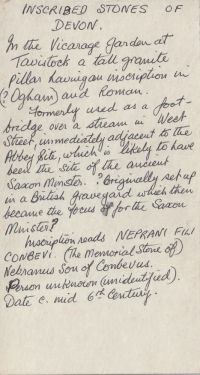 INSCRIBED STONES OF
DEVON.
In the Vicarage Garden at
Tavistock a tall granite
pillar having an inscription in
(? Ogham) and Roman.
Formerly used as a foot-
bridge over a stream in West
Street, immediately adjacent to the
Abbey Site, which is likely to have
been the site of the ancient
Saxon Minster. ? Originally set up
in a British graveyard which then
became the focus for the Saxon
Minster?
Inscription reads NEPRANI FILI
CONBEVI. (The Memorial Stone of)
Nebranus Son of Conbevus.
Person unknown (unidentified).
Date c. mid 6th Century.